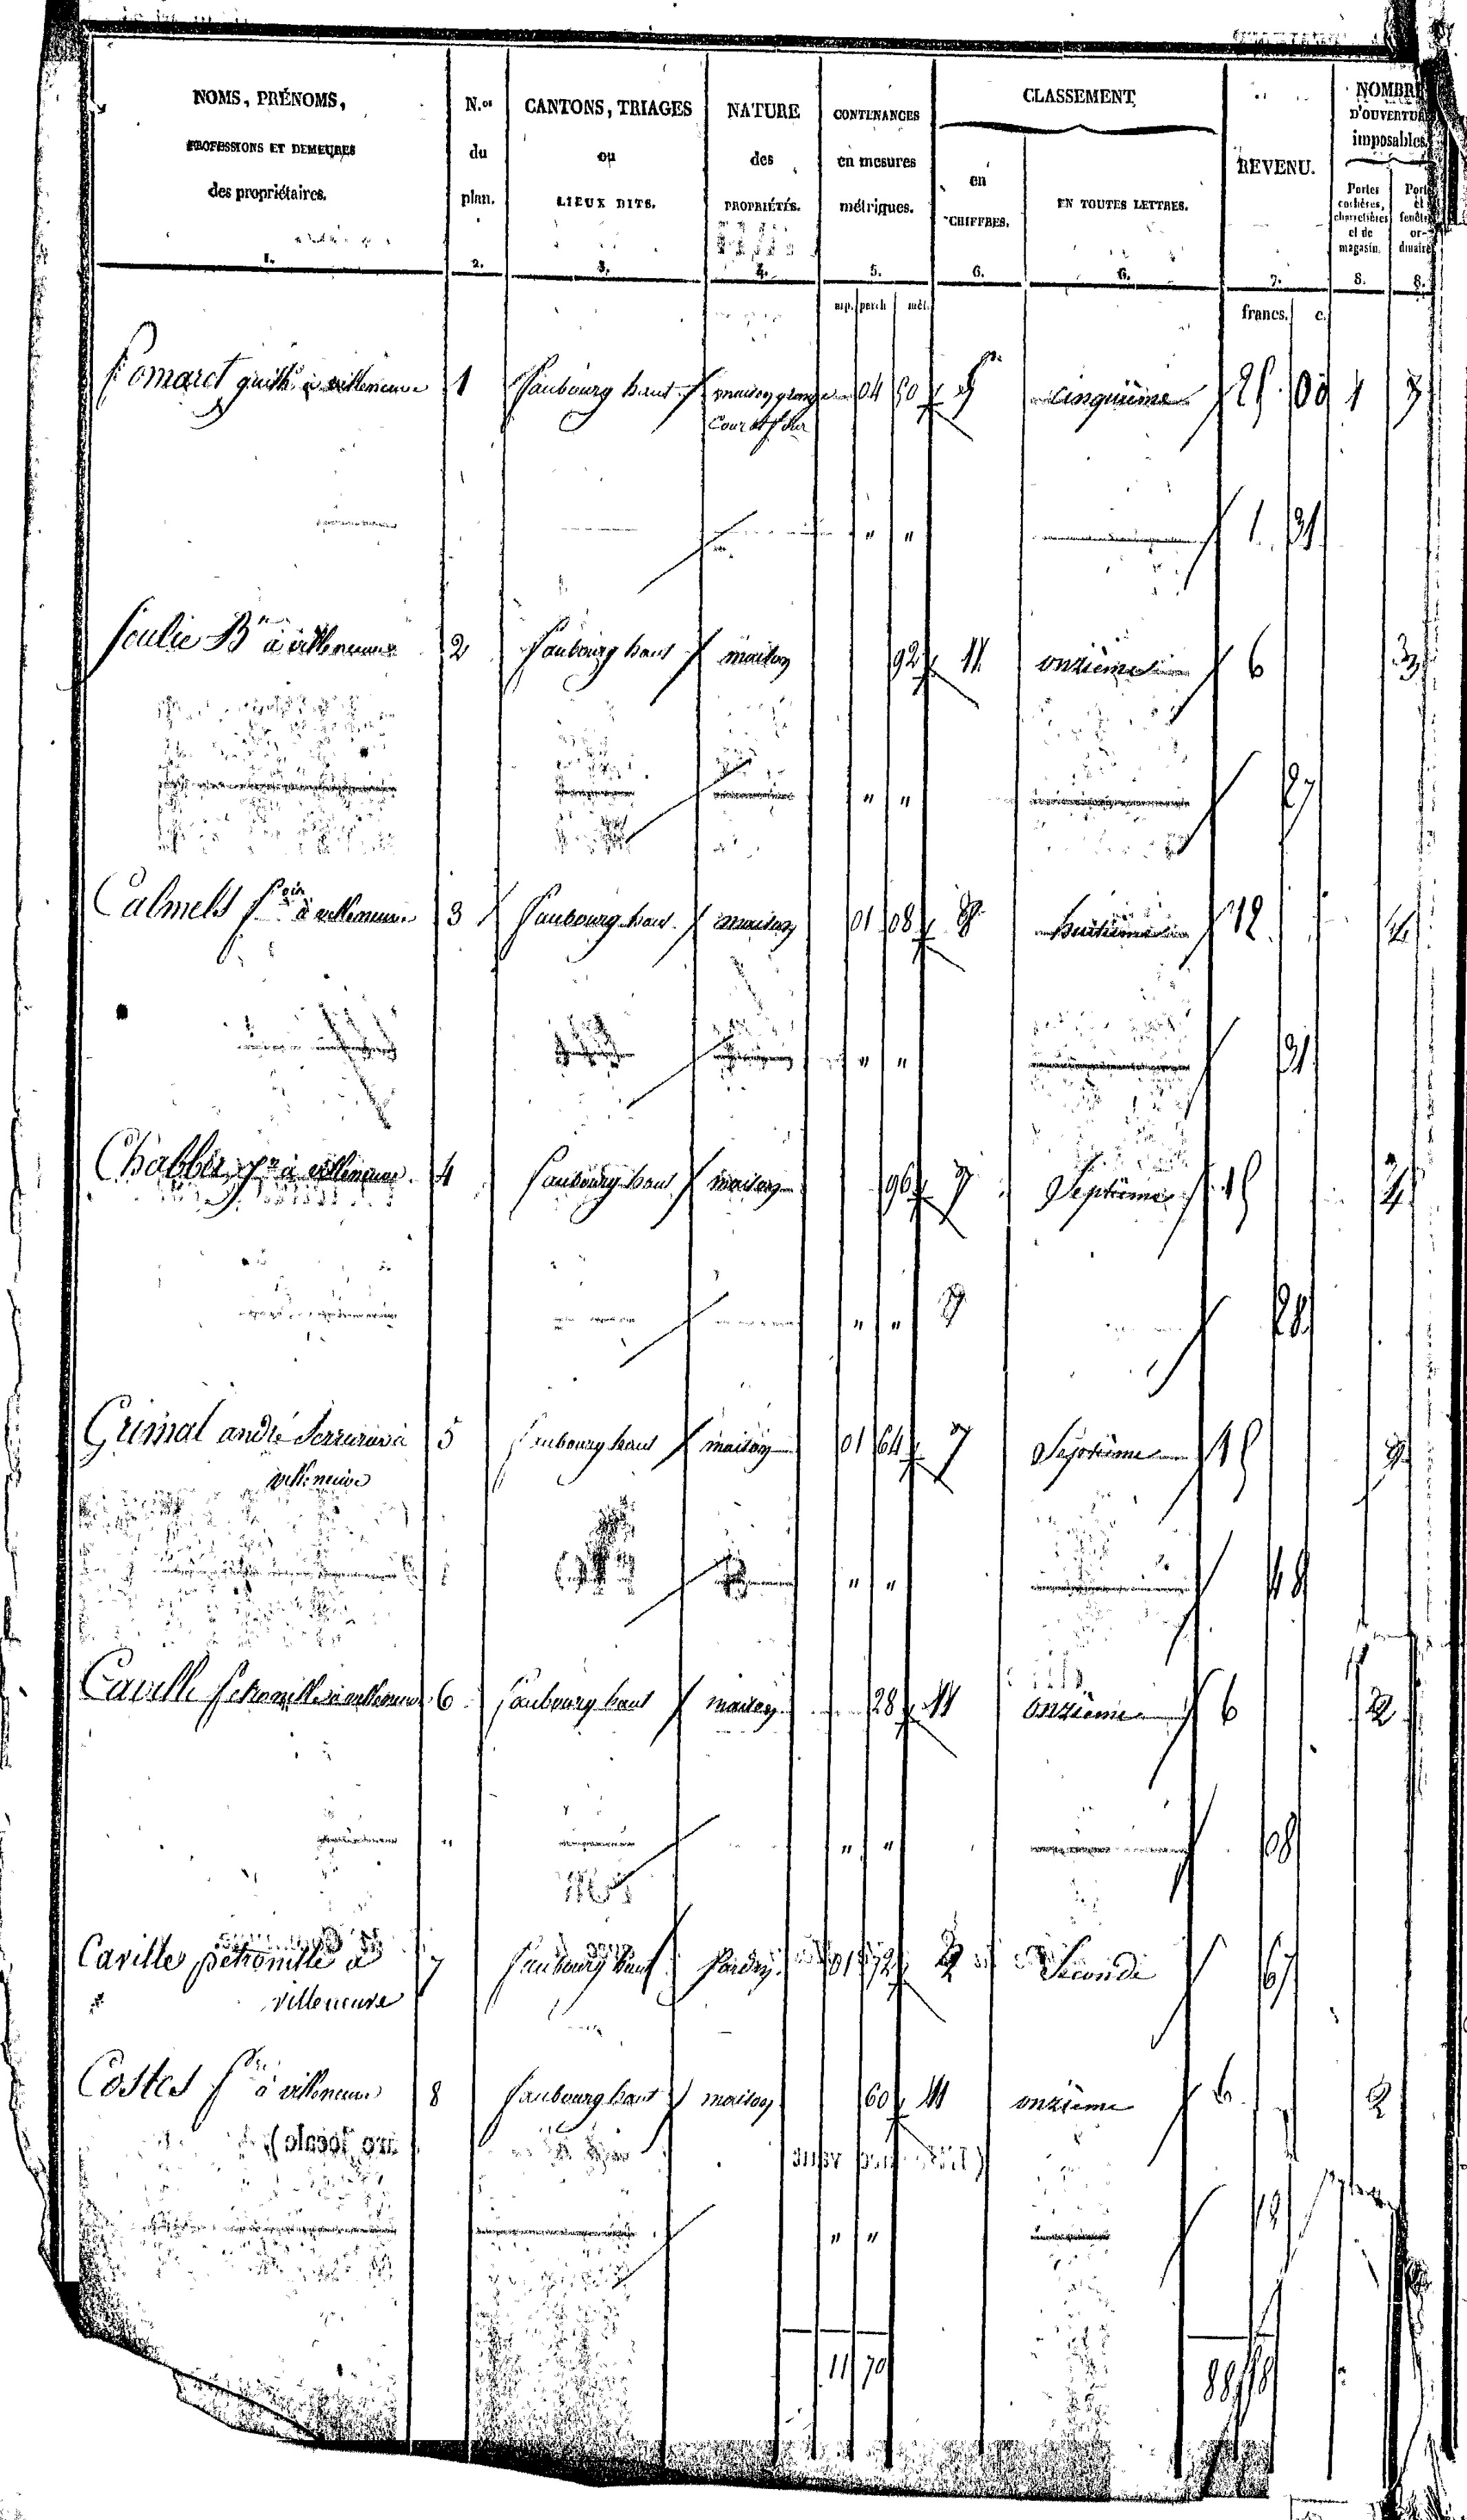 NOMS, PRÉNOMS, PROFESSIONS ET DEMEURES des propriétaires. N.os du plan. CANTONS, TRIAGES ou LIEUX DITS. NATURE des PROPRIÉTÉS. CONTENANCES en mesures métriques. CLASSEMENT en CHIFFRES. EN TOUTES LETTRES. REVENU. NOMBRE D'OUVERTURES imposables. Portes cochères, charretières et de magasin.
1. 2. 3. 4. 5. 6. 6. 7. 8. 8.
arp. perch. mèt. francs. c.
1 Faubourg haut maison grange 04 50 5 cinquième 25 00 1
Cour et
" " 1 31
à villeneuve 2 faubourg haut maison 92 11 onzième 6 3
" " 27
Calmels à villeneuve 3 faubourg haut maison 01 08 8 huitième 12 4
" " 31
à villeneuve 4 faubourg haut maison 96 7 Septième 15 4
" " 28
Grimal andré Serrurier à 5 faubourg haut maison 01 64 7 Septième 15
villeneuve
" " 48
Caville petronille à villeneuve 6 faubourg haut maison 28 11 onzième 6 2
" " " 08
Caville petronille à 7 faubourg haut 01 72 2 Seconde 67
villeneuve
Costes à villeneuve 8 faubourg haut maison 60 11 onzième 6 2
" "
11 70